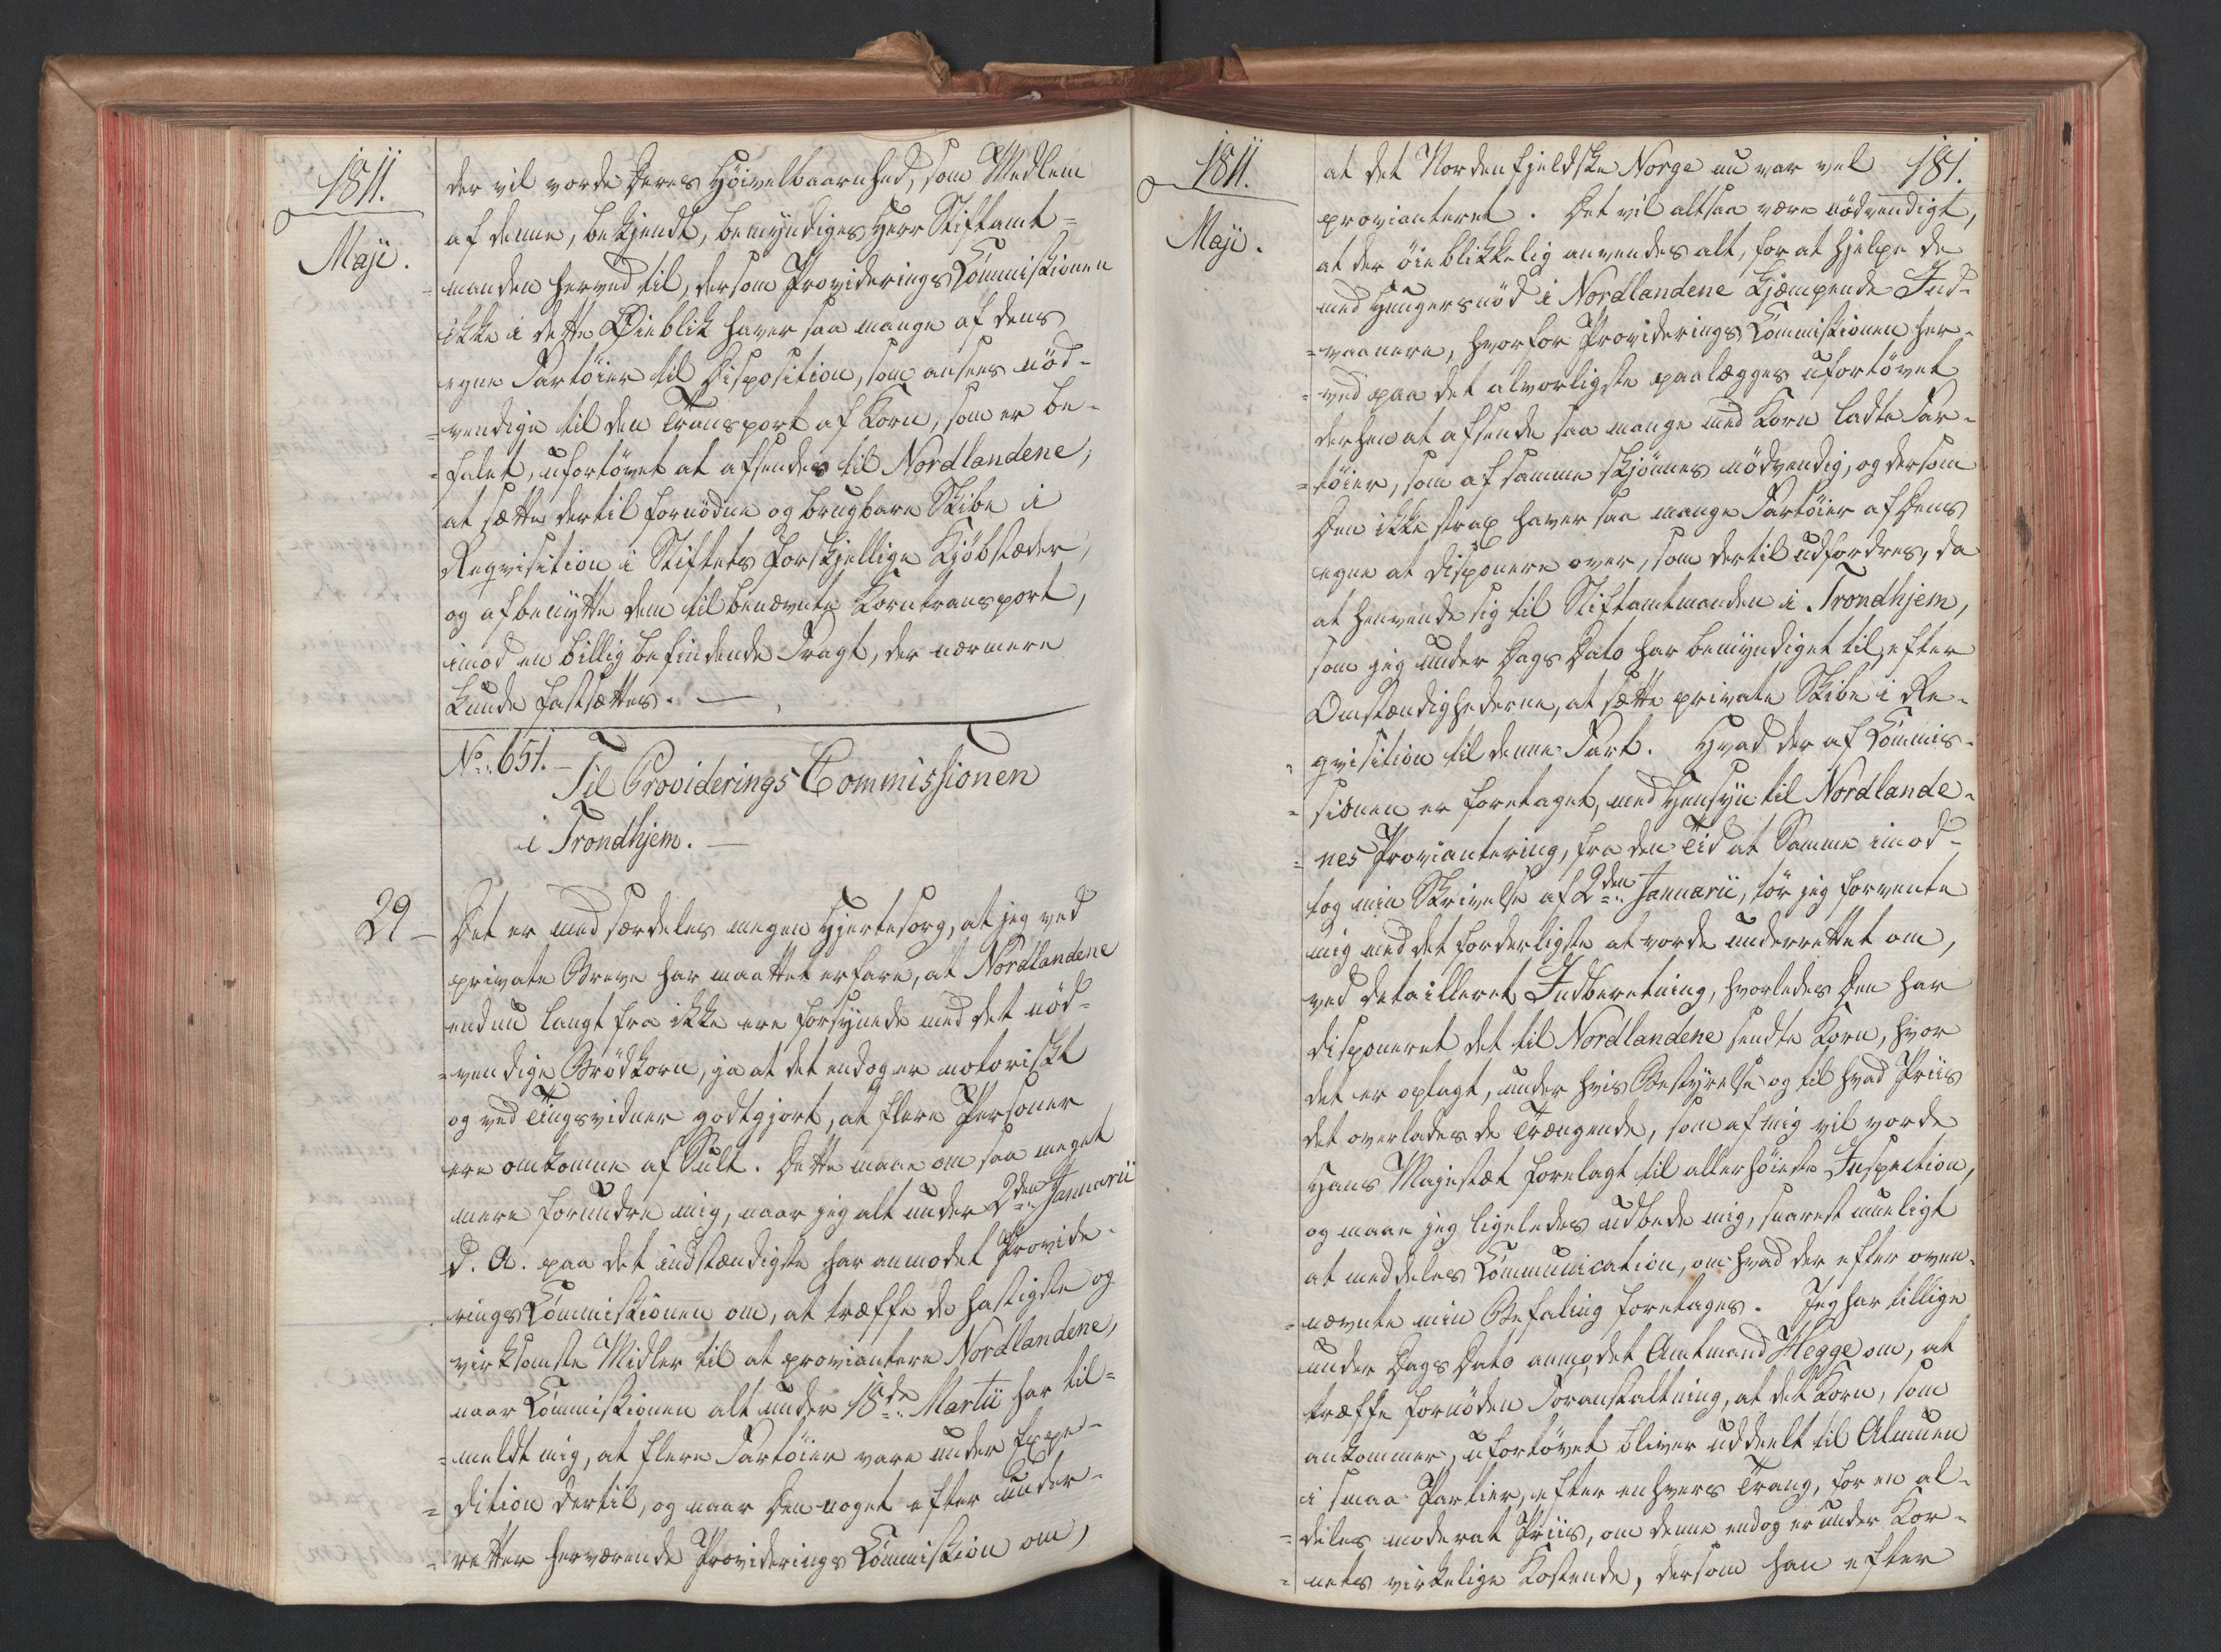 1811.
Maji.
der vil vorde Deres Höivelbaarnhed, som Medlem
af denne, bekjendt, bemyndiges Herr Stiftamt=
=manden herved til, dersom Provideringskommissionen
ikke i dette Öieblik haver saa mange af dens
egne Fartöier til Disposition, som ansees nöd-
=vendige til den Transport af Korn, som er be-
=falet, ufortövet at afsendes til Nordlandene,
at sætte dertil fornödne og brugbare Skibe i
Reqvisition i Stiftets forskjellige Kjöbstæder,
og afbenytte dem til benævnte Korntransport,
imod en billig befindende Fragt, der nærmere
kunde fastsættes. —
No. 651. Til Providerings Commissionen
i Trondhjem. —
29 — Det er med særdeles megen Hjertesorg, at jeg ved
private Breve har maattet erfare, at Nordlandene
endnu langt fra ikke ere forsynede med det nöd-
=vendige Brödkorn, ja at det endog er notoriskt
og ved Tingsvidner godtgjort, at flere Personer
ere omkomne af Sult. Dette maae om saa meget
mere forundre mig, naar jeg alt under 2den Januarii
d. A. paa det indstændigste har anmodet Provide-
rings Kommissionen om, at træffe de hastigste og
virksomste Midler til at proviantere Nordlandene,
naar Kommissionen alt under 18de Martii har til=
=meldt mig, at flere Fartöier vare under Expe-
=dition dertil, og naar den noget efter under-
=retter herværende Providerings Kommission om,
1811.
Maji.
181.
at det Nordenfjeldske Norge nu var vel
provianteret. Det vil altsaa være nödvendigt,
at der öieblikkelig anvendes alt, for at hjelpe de
med Hungersnöd i Nordlandene kjæmpende Ind-
=vaanere, hvorfor Providerings Kommissionen her-
=ved paa det alvorligste paalægges ufortövet
derhen at afsende saa mange med Korn ladte Far-
=töier, som af samme skjönnes nödvendig, og dersom
Den ikke strax haver saa mange Fartöier af Dens
egne at disponere over, som dertil udfordres, da
at henvende sig til Stiftamtmanden i Trondhjem,
som jeg under Dags Dato har bemyndiget til, efter
Omstændighederne, at sætte private Skibe i Re-
qvisition til denne Fart. Hvad der af Kommis-
=sionen er foretaget, med Hensyn til Nordlande-
=nes Proviantering, fra den Tid at Samme imod-
tog min Skrivelse af 2den Januarii, tör jeg forvente
mig med det forderligste at vorde underrettet om,
ved detailleret Indberetning, hvorledes Den har
disponeret det til Nordlandene sendte Korn, hvor
det er oplagt, under hvis Bestyrelse og til hvad Priis
det overlades de Trængende, som af mig vil vorde
Hans Majestæt forelagt til allerhöieste Inspection,
og maae jeg ligeledes udbede mig, snarest mueligt
at meddeles Kommunication, om hvad der efter oven-
=nævnte min Befaling foretages. Jeg har tillige
under Dags Dato anmodet Amtmand Hegge om, at
træffe fornöden Foranstaltning, at det Korn, som
ankommer, ufortövet bliver uddeelt til Almuen
i smaa Partier, efter enhvers Trang, for en al-
=deles moderat Priis, om denne endog er under Kor-
=nets virkelige Kostende, dersom han efter